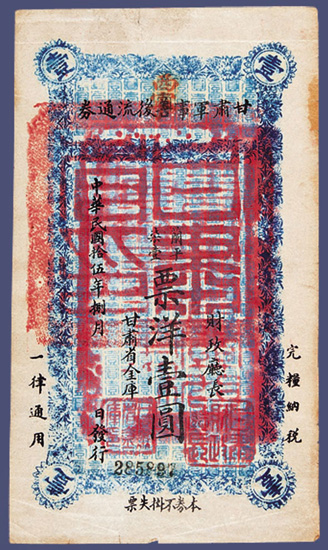 壹
壹
甘肅軍事善後流通券
完糧納稅
財政廳長
蘭平
票洋壹圓
甘肅省金庫
中華民國拾伍年捌月 日發行
一律通用
壹
壹
本券不掛失票